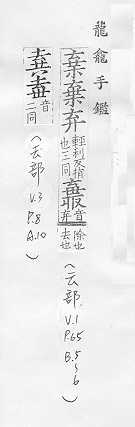 龍龕手鑑
棄棄弃 輕利反捐也三同 音弃 除也去也 (云部 V.1 P.65 B.5~6)
音二同 (去部 V.3 P.8 A.10)